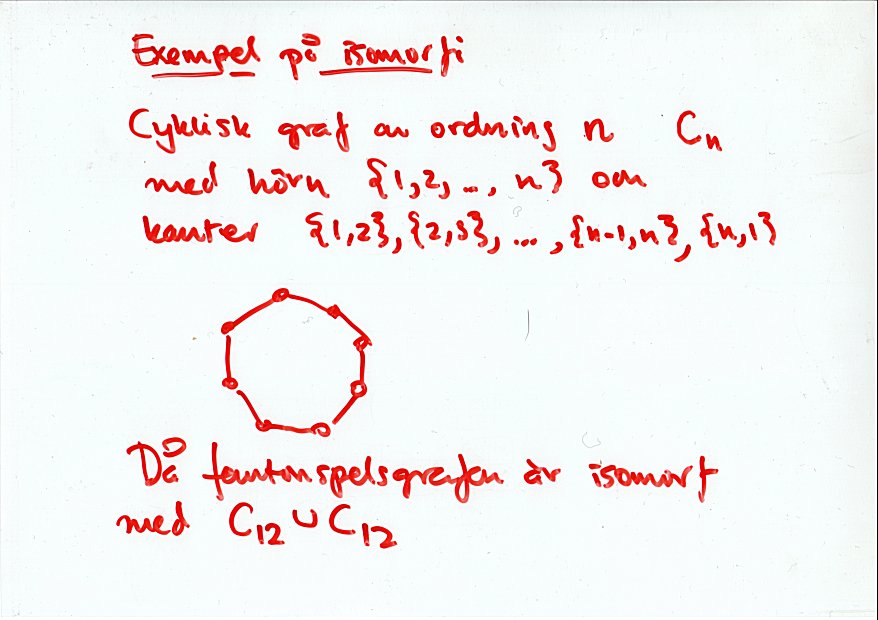 Exempel på isomorfi
Cyklisk graf av ordning n Cn
med hörn {1,2,..., n} och
kanter {1,2}, {2,3}, ..., {n-1,n}, {n,1}
Då femtonspelsgrafen är isomorf
med C12 ∪ C12